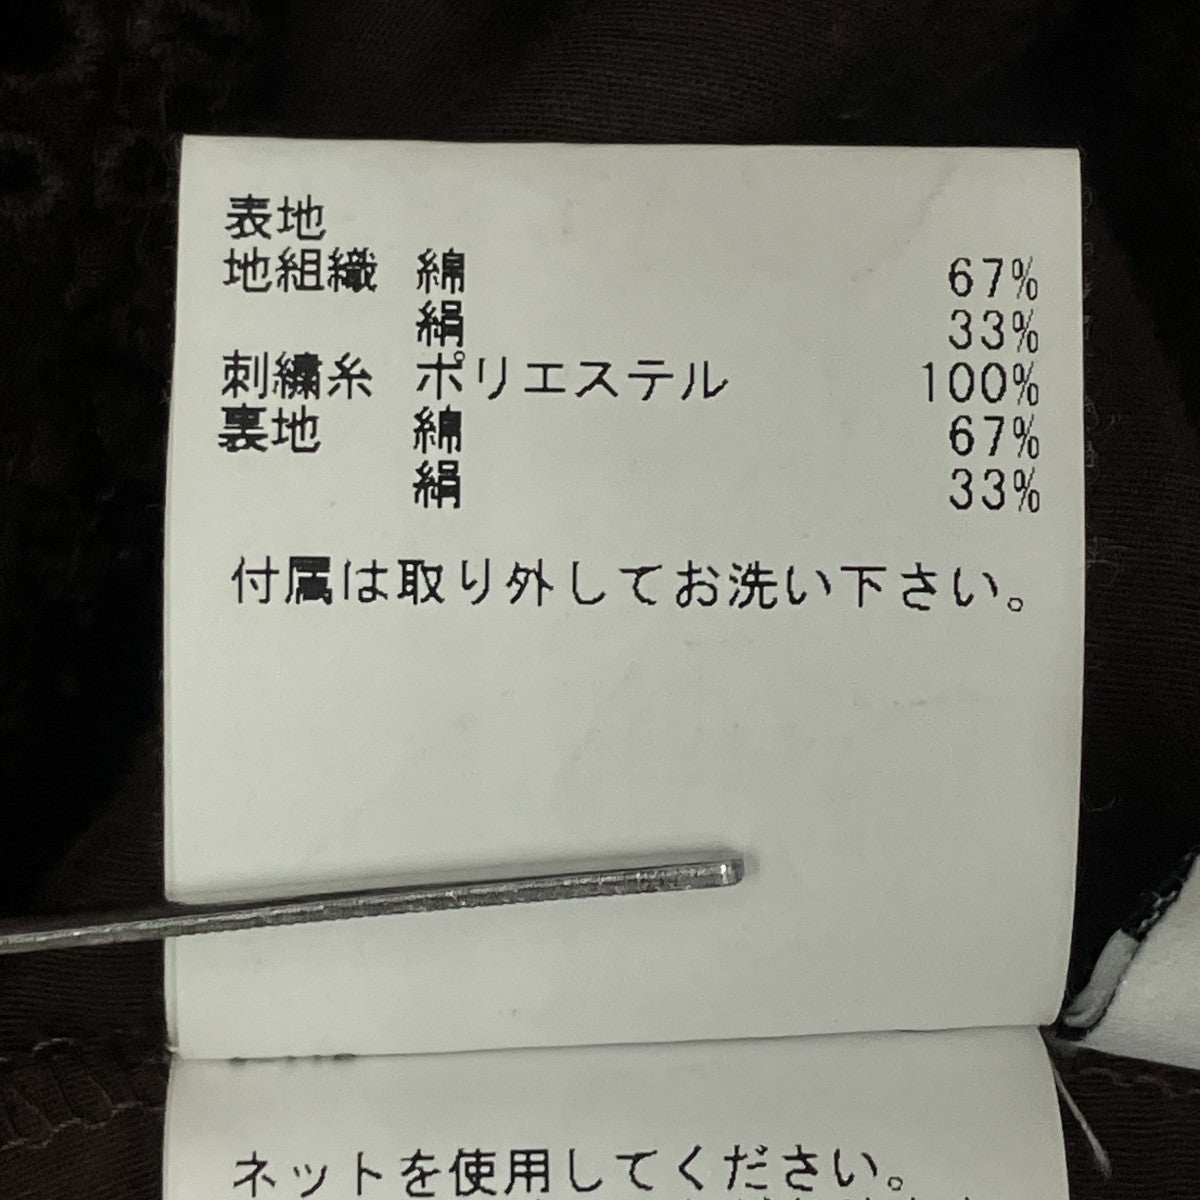 表地
地組織 綿 67%
絹 33%
刺繍糸 ポリエステル 100%
裏地 綿 67%
絹 33%
付属は取り外してお洗い下さい。
ネットを使用してください。